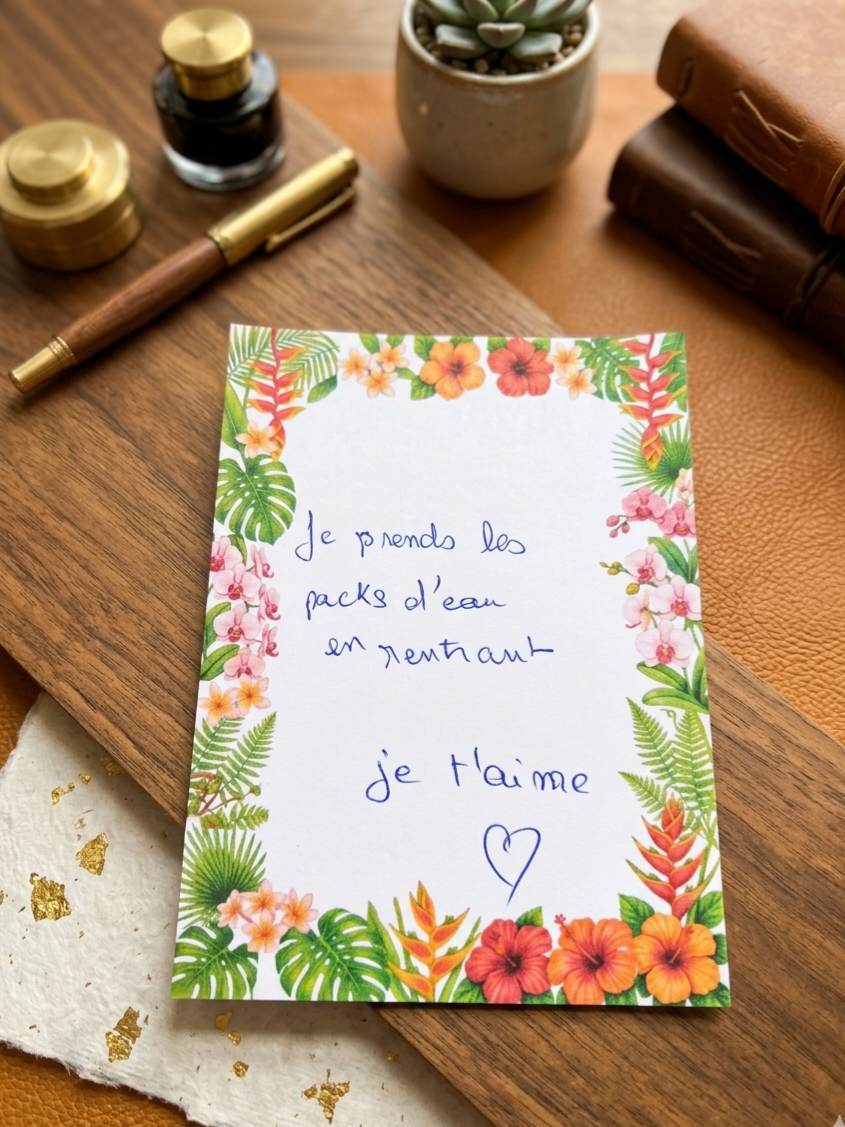 Je prends les
packs d'eau
en rentrant
je t'aime